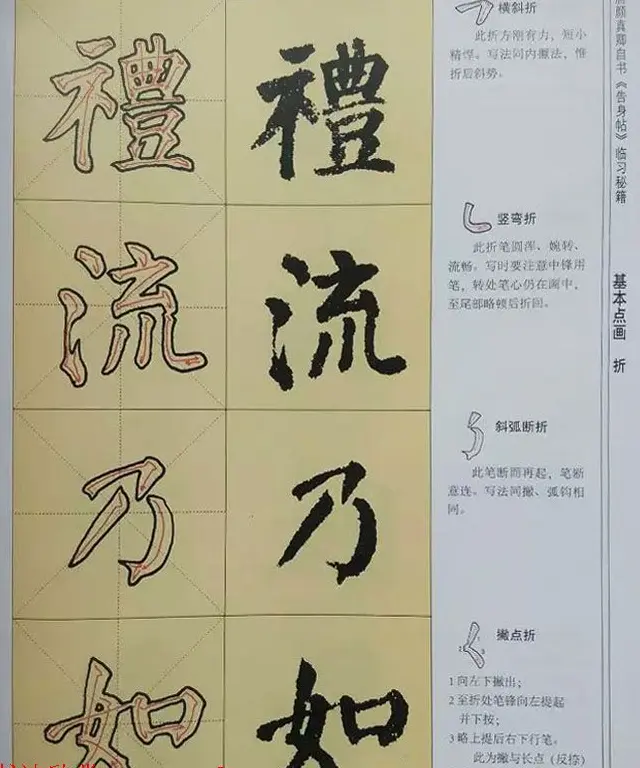 禮 禮
横斜折
此折方刚有力，短小
精悍。写法同内擫法，惟
折后斜势。
流 流
竖弯折
此折笔圆浑、婉转、
流畅。写时要注意中锋用
笔，转处笔心仍在画中，
至尾部略顿后折回。
乃 乃
斜弧断折
此笔断而再起，笔断
意连。写法同撇、弧钩相
同。
如 如
撇点折
1向左下撇出；
2至折处笔锋向左提起
并下按；
3略上提后右下行笔。
此为撇与长点（反捺）
颜真卿自书《告身帖》临习秘籍
基本点画 折